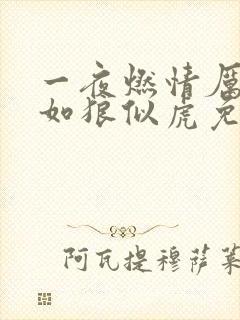 一夜燃情厲
如狼似虎免
阿瓦提穆萨莱